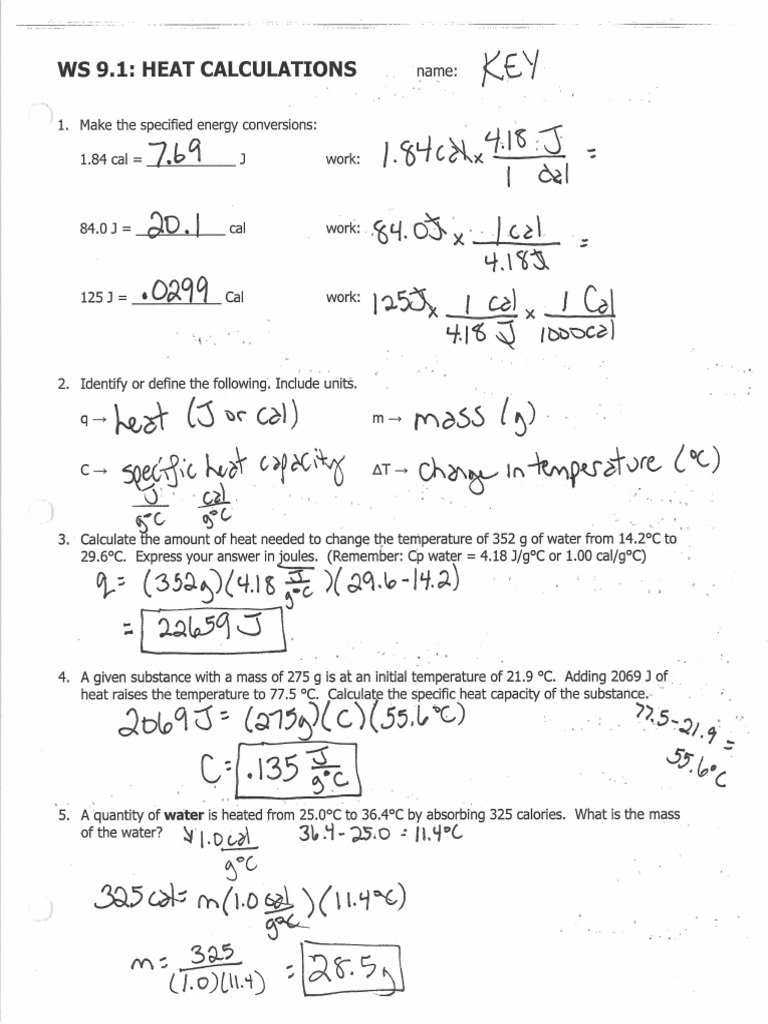 WS 9.1: HEAT CALCULATIONS name: KEY
1. Make the specified energy conversions:
1.84 cal = 7.69 J work: 1.84 cal x 4.18 J / 1 cal =
84.0 J = 20.1 cal work: 84.0 J x 1 cal / 4.18 J =
125 J = .0299 Cal work: 125 J x 1 cal / 4.18 J x 1 Cal / 1000 cal
2. Identify or define the following. Include units.
q → heat (J or cal) m → mass (g)
C → specific heat capacity ΔT → change in temperature (°C)
J / g°C cal / g°C
3. Calculate the amount of heat needed to change the temperature of 352 g of water from 14.2°C to
29.6°C. Express your answer in joules. (Remember: Cp water = 4.18 J/g°C or 1.00 cal/g°C)
q = (352g)(4.18 J / g°C)(29.6-14.2)
= 22659 J
4. A given substance with a mass of 275 g is at an initial temperature of 21.9 °C. Adding 2069 J of
heat raises the temperature to 77.5 °C. Calculate the specific heat capacity of the substance.
2069 J = (275g)(C)(55.6°C) 77.5-21.9 =
55.6°C
C = .135 J / g°C
5. A quantity of water is heated from 25.0°C to 36.4°C by absorbing 325 calories. What is the mass
of the water? ↘ 1.0 cal / g°C 36.4-25.0 = 11.4°C
325 cal = m(1.0 cal / g°C)(11.4°C)
m = 325 / (1.0)(11.4) = 28.5g